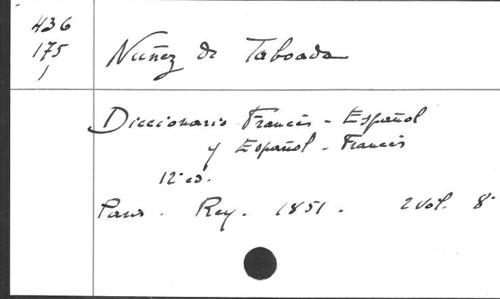 436
175
1
Nuñez de Taboada
Diccionario Francés - Español
y Español - Francés
12ª ed.
Paris. Rey. 1851. 2 Vol. 8º